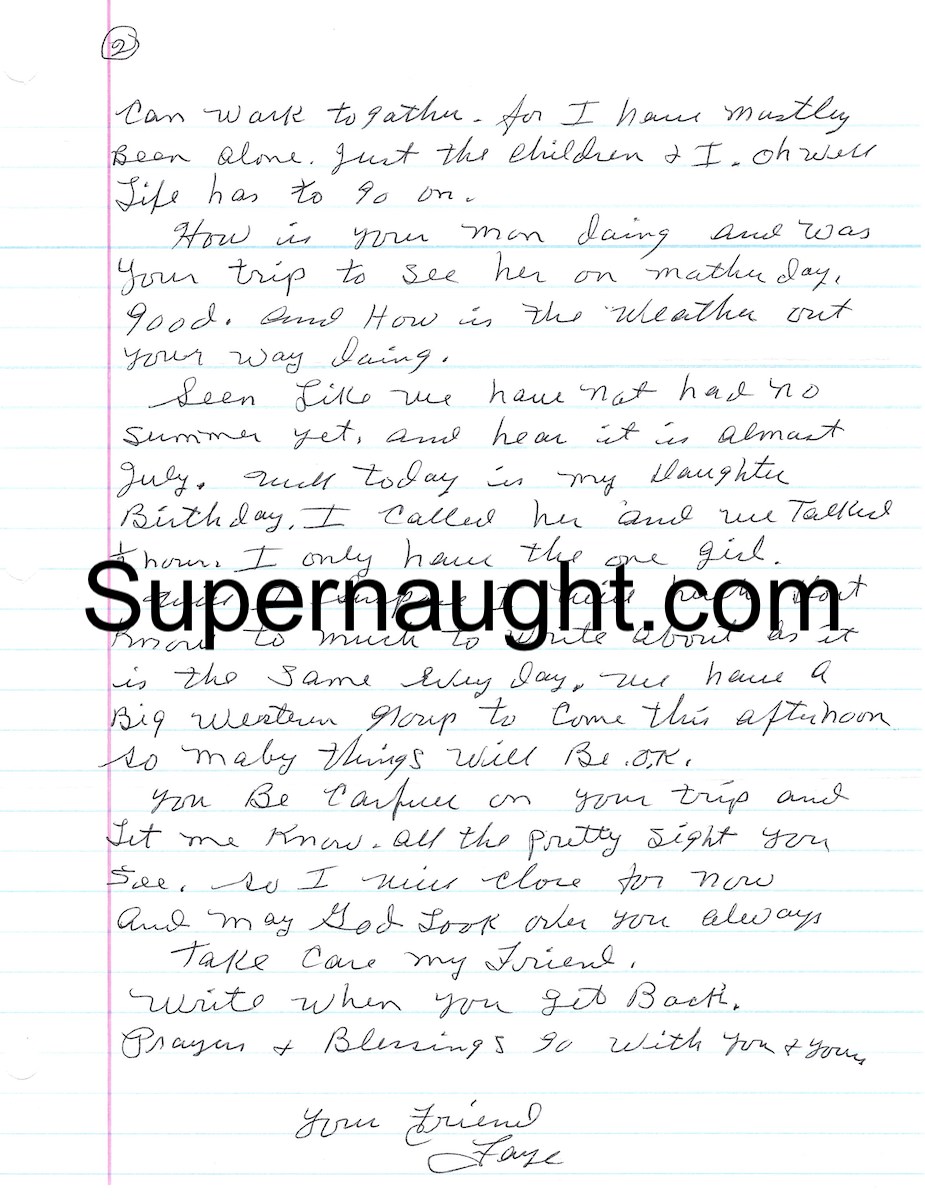 2
Can wark togather. for I have mustley
Been alone. Just the children & I. oh well
Life has to go on.
How is your mon daing and was
your trip to see her on mather day.
good. and How is the weather out
your way daing.
Seen Like we have not had no
summer yet. and hear it is almast
July. well today is my Daughter
Birthday. I called her and we Talked
½ hour. I only have the one girl.
Supernaught.com
I I dont
Know to much to write about as it
is the same every day. we have a
Big western group to Come this afternoon
so maby things will Be .O.K.
you Be Carfull on your trip and
Let me Know. all the pretty sight you
See. so I will close for now
And may God Look over you always
Take Care my Friend.
Write when you get Back.
Prayers & Blessings go with you & yours
Your Friend
Faye